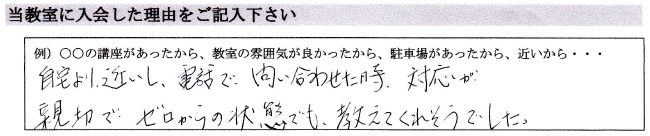 当教室に入会した理由をご記入下さい
例）○○の講座があったから、教室の雰囲気が良かったから、駐車場があったから、近いから・・・
自宅より、近いし、電話で 問い合わせた時、対応が
親切で ゼロからの状態でも、教えてくれそうでした。